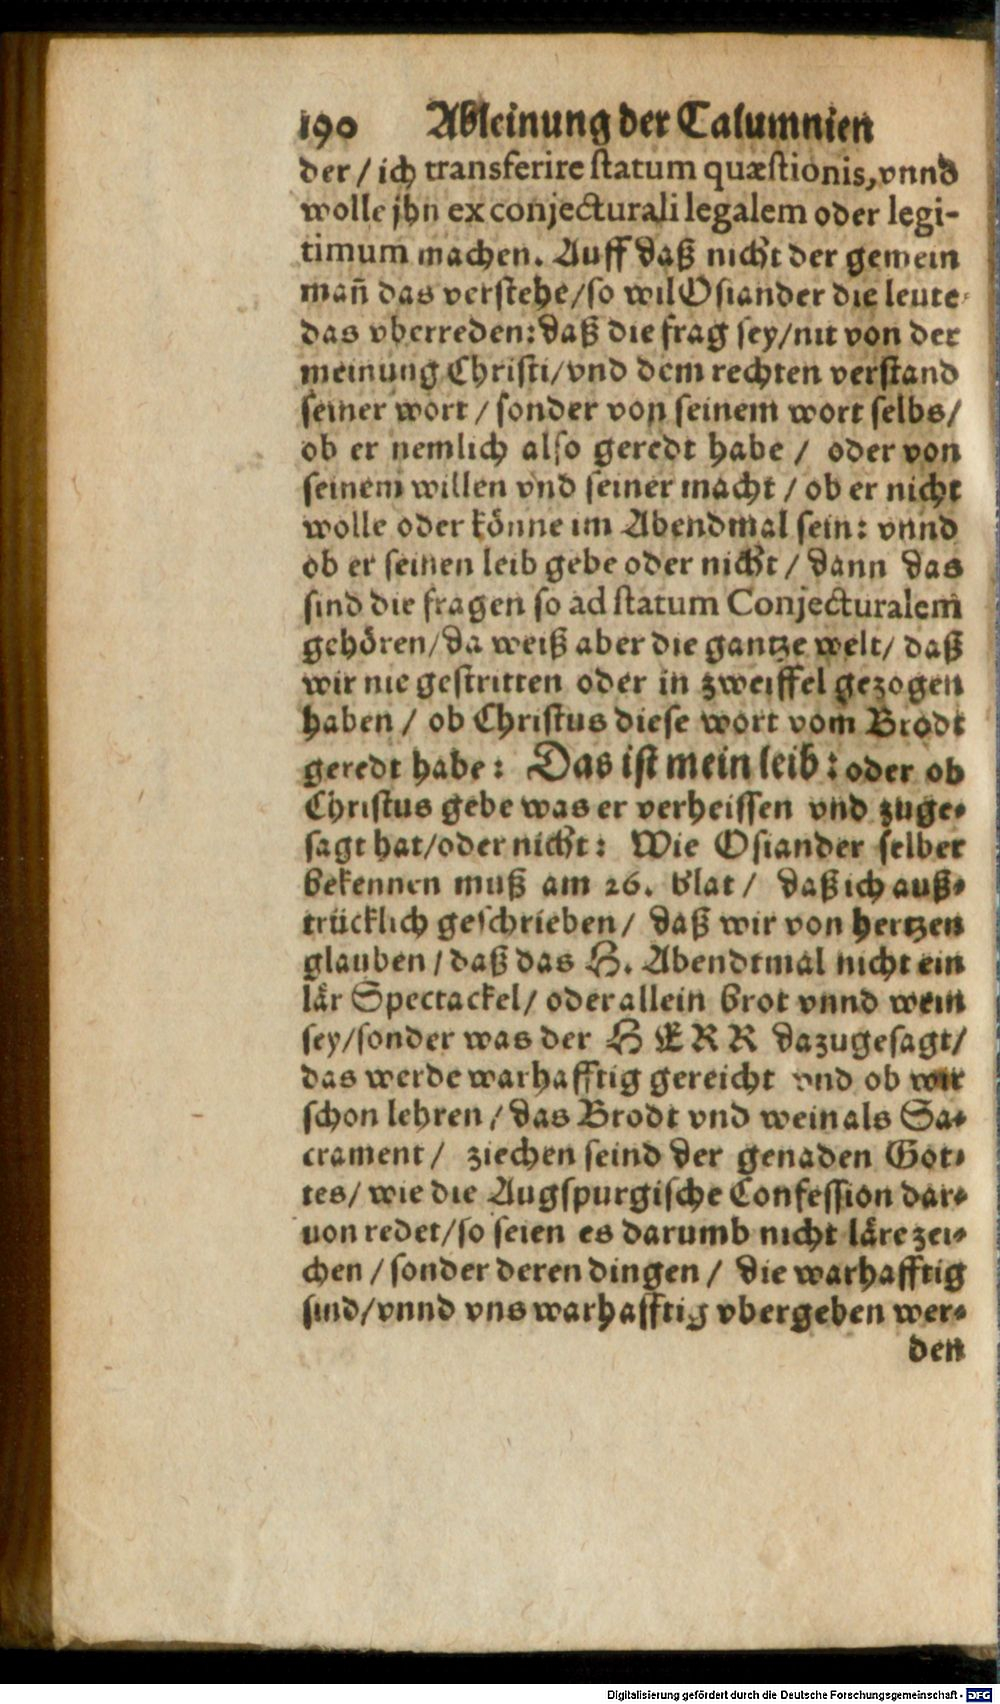 190 Ableinung der Calumnien
der / ich transferire statum quæstionis, vnnd
wolle jhn ex conjecturali legalem oder legi-
timum machen. Auff daß nicht der gemein
mañ das verstehe / so wil Osiander die leute
das vberreden: daß die frag sey / nit von der
meinung Christi / vnd dem rechten verstand
seiner wort / sonder von seinem wort selbs /
ob er nemlich also geredt habe / oder von
seinem willen vnd seiner macht / ob er nicht
wolle oder könne im Abendmal sein: vnnd
ob er seinen leib gebe oder nicht / dann das
sind die fragen so ad statum Conjecturalem
gehören / da weiß aber die gantze welt / daß
wir nie gestritten oder in zweiffel gezogen
haben / ob Christus diese wort vom Brodt
geredt habe: Das ist mein leib: oder ob
Christus gebe was er verheissen vnd zuge-
sagt hat / oder nicht: Wie Osiander selber
bekennen muß am 26. blat / daß ich auß-
trücklich geschrieben / daß wir von hertzen
glauben / daß das H. Abendtmal nicht ein
lär Spectackel / oder allein brot vnnd wein
sey / sonder was der HERR dazugesagt /
das werde warhafftig gereicht vnd ob wir
schon lehren / das Brodt vnd wein als Sa-
crament / ziechen seind der genaden Got-
tes / wie die Augspurgische Confession dar-
uon redet / so seien es darumb nicht läre zei-
chen / sonder deren dingen / die warhafftig
sind / vnnd vns warhafftig vbergeben wer-
den
Digitalisierung gefördert durch die Deutsche Forschungsgemeinschaft - DFG